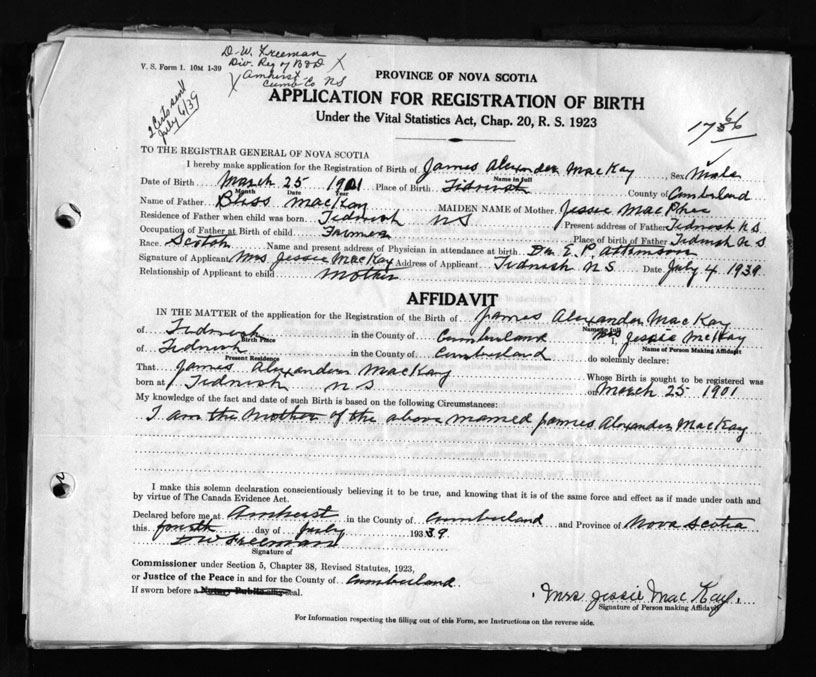 D. W. Freeman
V. S. Form 1. 10M 1-39
Div. Reg of B & D X
X Amherst
Cumb Co NS
2 Certs sent
July 6/39
PROVINCE OF NOVA SCOTIA
APPLICATION FOR REGISTRATION OF BIRTH
Under the Vital Statistics Act, Chap. 20, R. S. 1923
TO THE REGISTRAR GENERAL OF NOVA SCOTIA
I hereby make application for the Registration of Birth of James Alexander MacKay Sex Male
Name in full
Date of Birth March 25 1901 Place of Birth Tidnish County of Cumberland
Month Date Year
Name of Father Bliss MacKay MAIDEN NAME of Mother Jessie MacPhee
Residence of Father when child was born Tidnish NS Present address of Father Tidnish N.S.
Occupation of Father at Birth of child Farmer Place of birth of Father Tidnish N S
Race. Scotch Name and present address of Physician in attendance at birth Dr. E. P. Atkinson
Signature of Applicant Mrs Jessie MacKay Address of Applicant Tidnish N S Date July 4 1939
Relationship of Applicant to child Mother
AFFIDAVIT
IN THE MATTER of the application for the Registration of the Birth of James Alexander MacKay
Name in full
of Tidnish in the County of Cumberland I, Mrs Jessie McKay
Birth Place Name of Person Making Affidavit
of Tidnish in the County of Cumberland do solemnly declare:
Present Residence
That James Alexander MacKay Whose Birth is sought to be registered was
born at Tidnish N S on March 25 1901
My knowledge of the fact and date of such Birth is based on the following Circumstances:
I am the Mother of the above named James Alexander MacKay
I make this solemn declaration conscientiously believing it to be true, and knowing that it is of the same force and effect as if made under oath and
by virtue of The Canada Evidence Act.
Declared before me at Amherst in the County of Cumberland and Province of Nova Scotia
this fourth day of July 193 39.
D W Freeman
Signature of
Commissioner under Section 5, Chapter 38, Revised Statutes, 1923,
or Justice of the Peace in and for the County of Cumberland
If sworn before a Notary Public, seal.
Mrs Jessie MacKay
Signature of Person making Affidavit
For Information respecting the filling out of this Form, see Instructions on the reverse side.